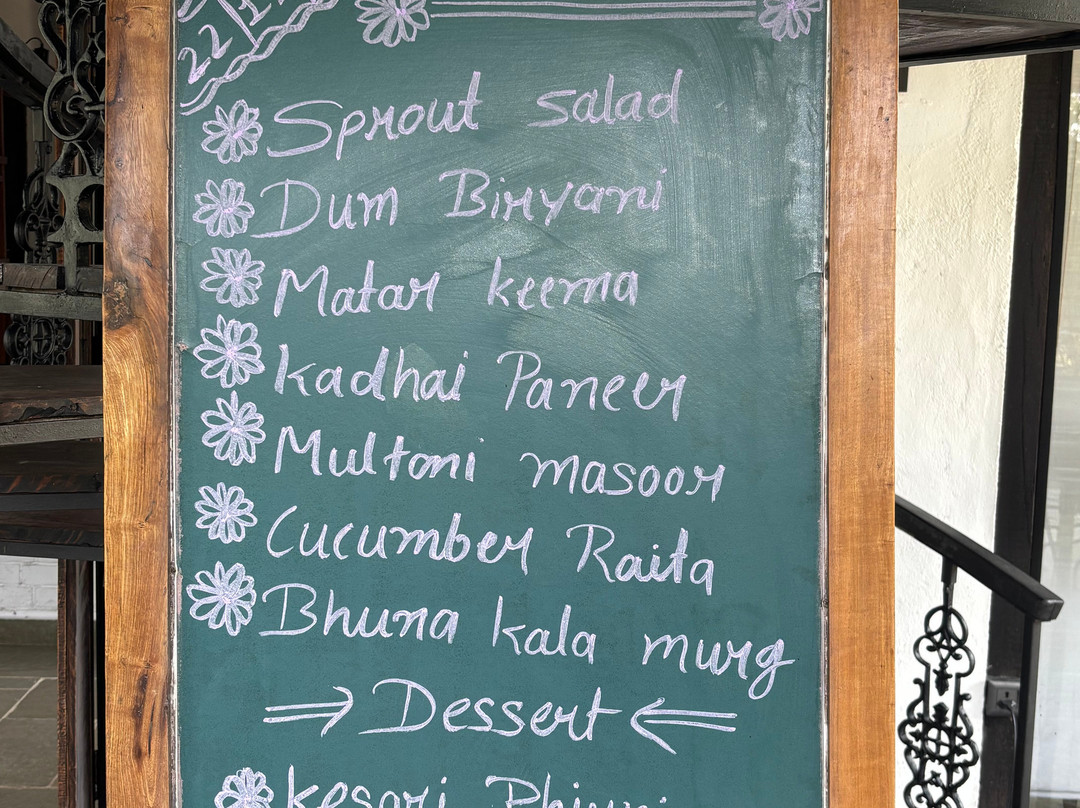 22
Sprout salad
Dum Biryani
Matar keema
Kadhai Paneer
Multani masoor
Cucumber Raita
Bhuna kala murg
⇒ Dessert ⇐
kesari